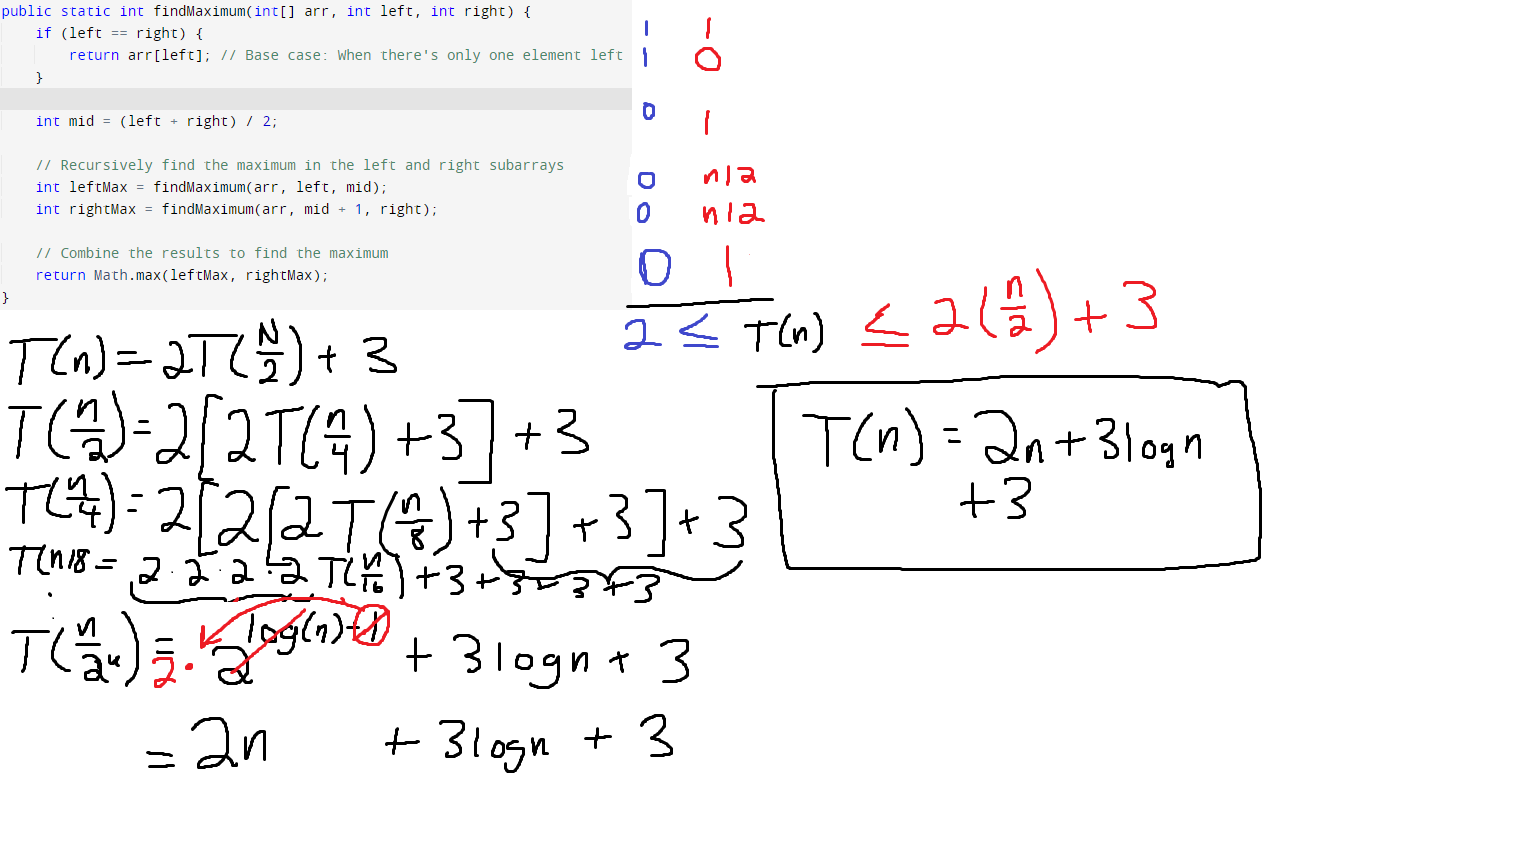 public static int findMaximum(int[] arr, int left, int right) {
if (left == right) {
return arr[left]; // Base case: When there's only one element left
}
int mid = (left + right) / 2;
// Recursively find the maximum in the left and right subarrays
int leftMax = findMaximum(arr, left, mid);
int rightMax = findMaximum(arr, mid + 1, right);
// Combine the results to find the maximum
return Math.max(leftMax, rightMax);
}
1 1
1 0
0 1
0 n/2
0 n/2
0 1
2 ≤ T(n) ≤ 2(n/2) + 3
T(n) = 2T(N/2) + 3
T(n/2) = 2[2T(n/4) + 3] + 3
T(n/4) = 2[2[2T(n/8) + 3] + 3] + 3
T(n/8 = 2 · 2 · 2 · 2 T(n/16) + 3 + 3 + 3 + 3
T(n/2^k) = 2 · 2^log(n)+1 + 3logn + 3
= 2n + 3logn + 3
T(n) = 2n + 3logn
+ 3